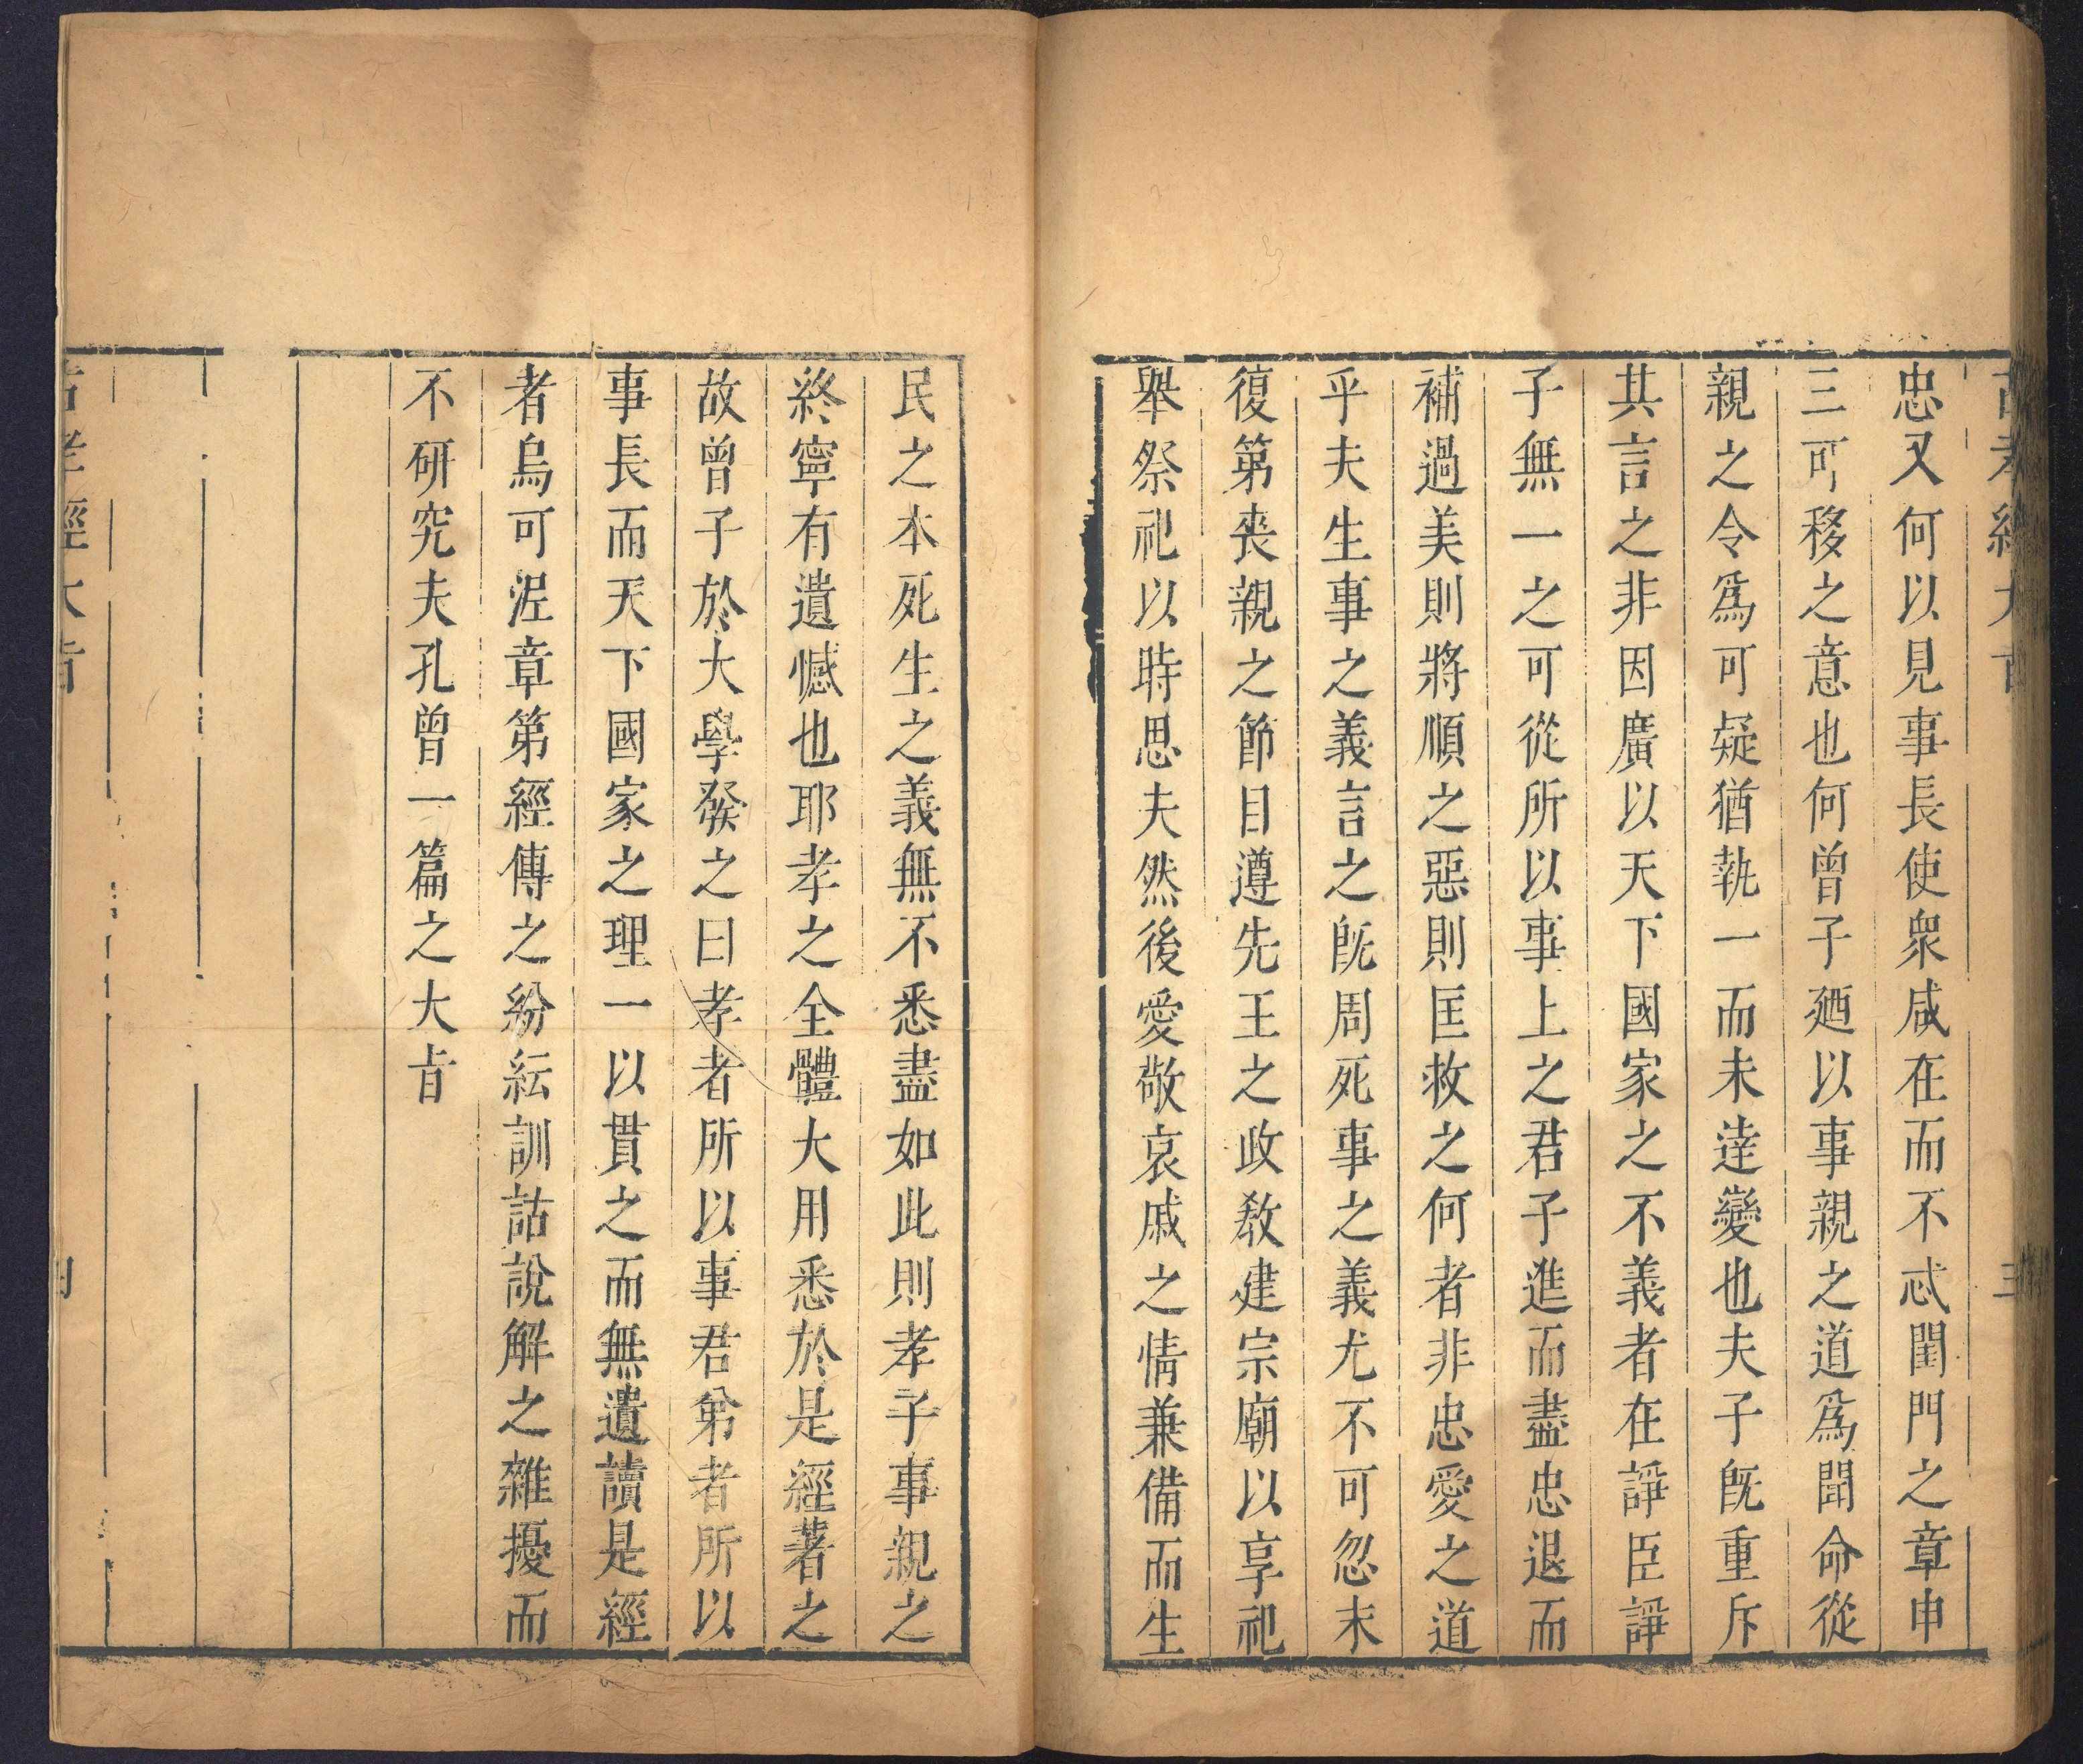 忠又何以見事長使衆咸在而不忒閨門之章申
三可移之意也何曾子廼以事親之道爲聞命從
親之令爲可疑猶執一而未逹變也夫子旣重斥
其言之非因廣以天下國家之不義者在諍臣諍
子無一之可從所以事上之君子進而盡忠退而
補過美則將順之惡則匡救之何者非忠愛之道
乎夫生事之義言之旣周死事之義尤不可忽末
復第喪親之節目遵先王之政敎建宗廟以享祀
舉祭祀以時思夫然後愛敬哀戚之情兼備而生
民之本死生之義無不悉盡如此則孝子事親之
終寧有遺憾也耶孝之全體大用悉於是經著之
故曾子於大學發之曰孝者所以事君弟者所以
事長而天下國家之理一以貫之而無遺讀是經
者烏可泥章第經傳之紛紜訓詁說解之雜擾而
不研究夫孔曾一篇之大旨